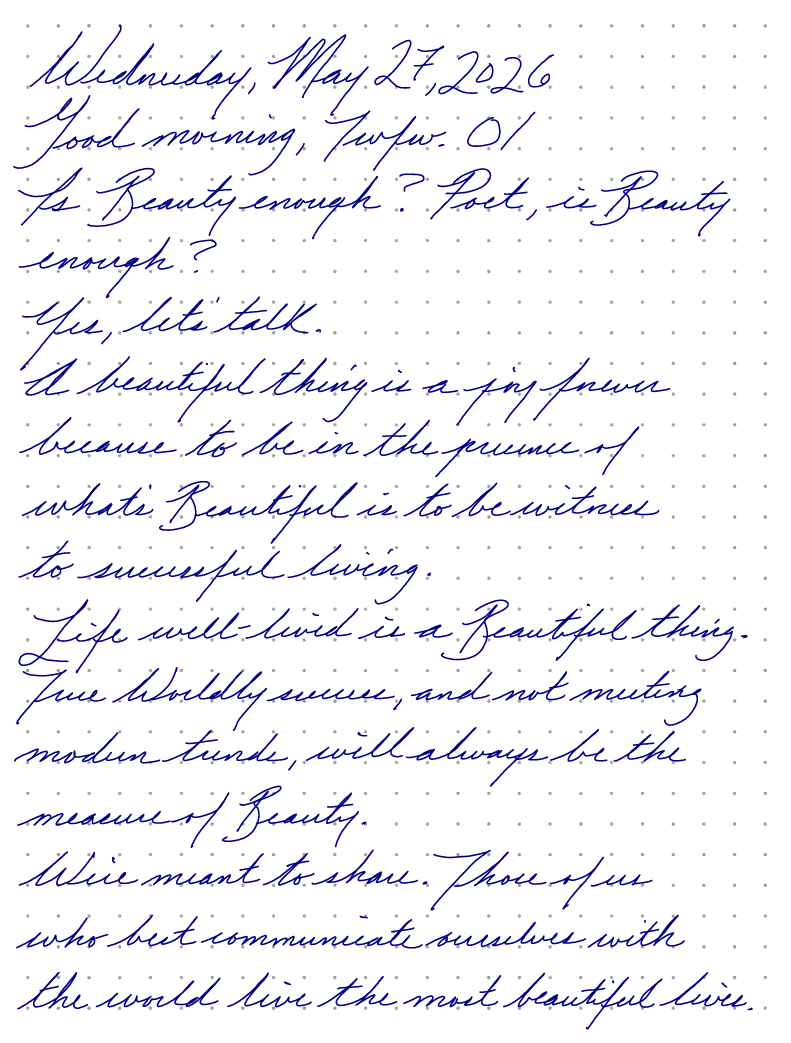 Wednesday, May 27, 2026
Good morning, Twfw. 01
Is Beauty enough? Poet, is Beauty
enough?
Yes, let's talk.
A beautiful thing is a joy forever
because to be in the presence of
what's Beautiful is to be witness
to successful living.
Life well-lived is a Beautiful thing.
True Worldly success, and not meeting
modern trends, will always be the
measure of Beauty.
We're meant to share. Those of us
who best communicate ourselves with
the world live the most beautiful lives.